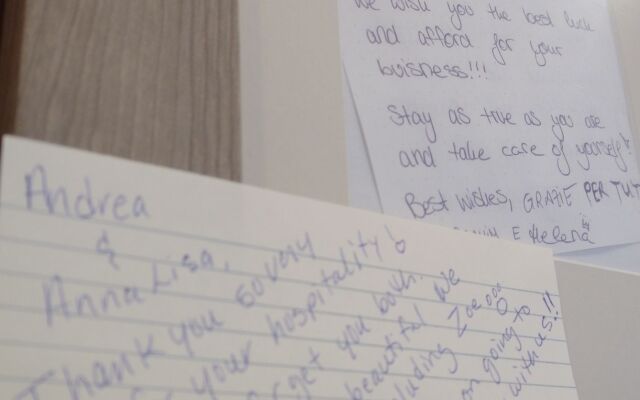 We wish you the best luck
and afford for your
buisness!!!
Stay as true as you are
and take care of yourself
Best wishes, GRAZIE PER TUT
E Helena
Andrea
&
Anna Lisa.
Thank you so very
your hospitality
get you both.
beautiful We
luding Zoe
on going to
with us!!